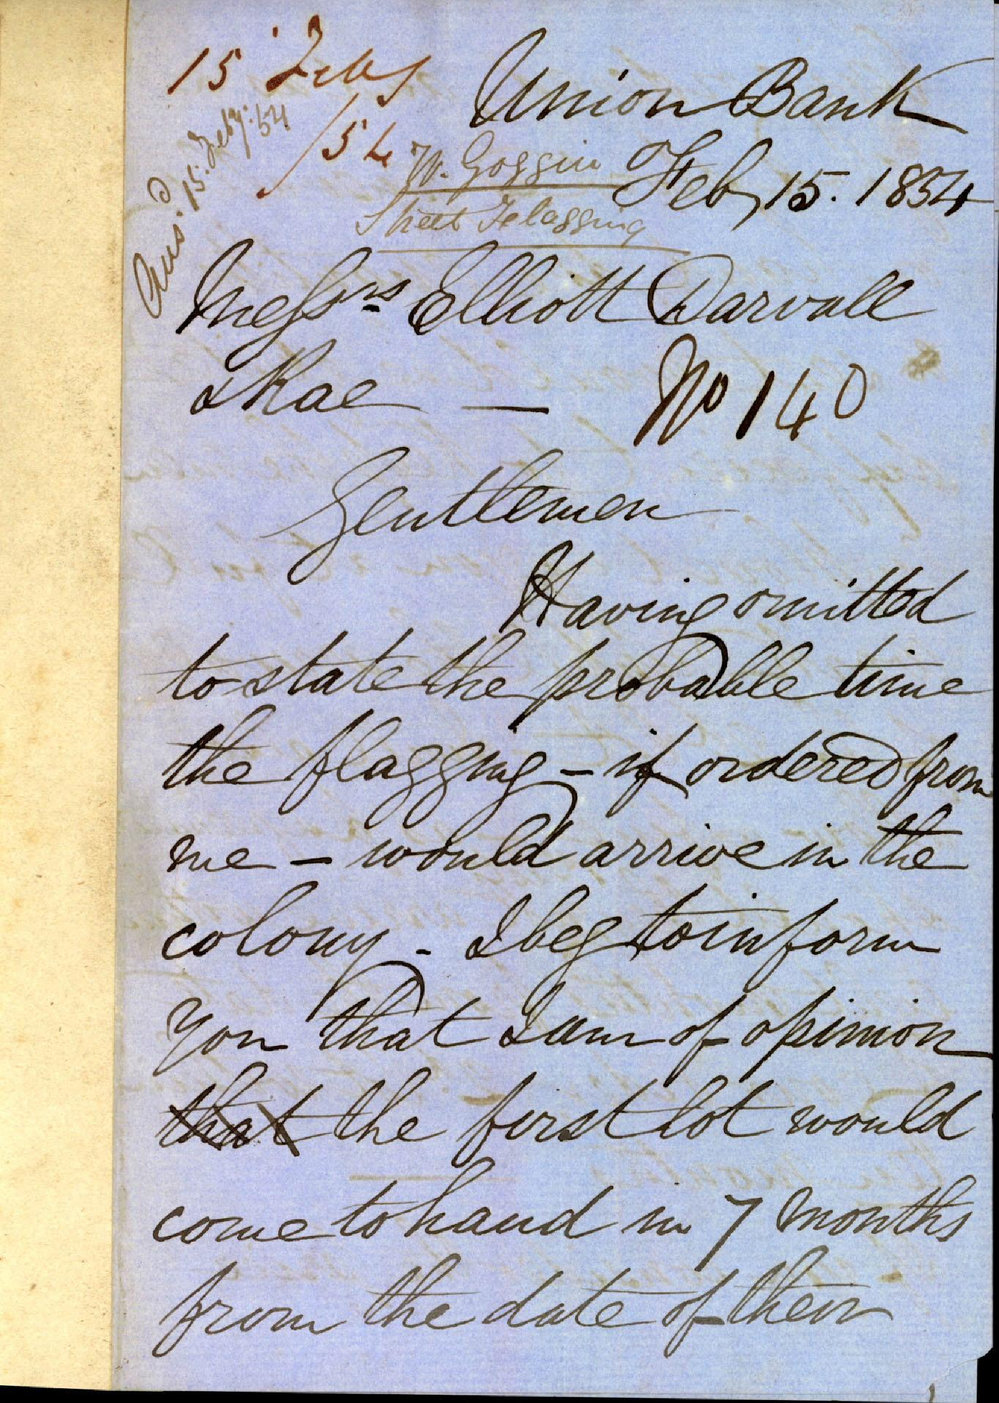 15 Feby
/54
Ansd. 15. Feby. 54
Union Bank
W. Goggin
Feby 15. 1854
Street Flagging
Messrs Elliott Darvall
& Rae —
No 140
Gentlemen
Having omitted
to state the probable time
the flagging – if ordered from
me – would arrive in the
colony – I beg to inform
you that I am of opinion
that the first lot would
come to hand in 7 Months
from the date of their